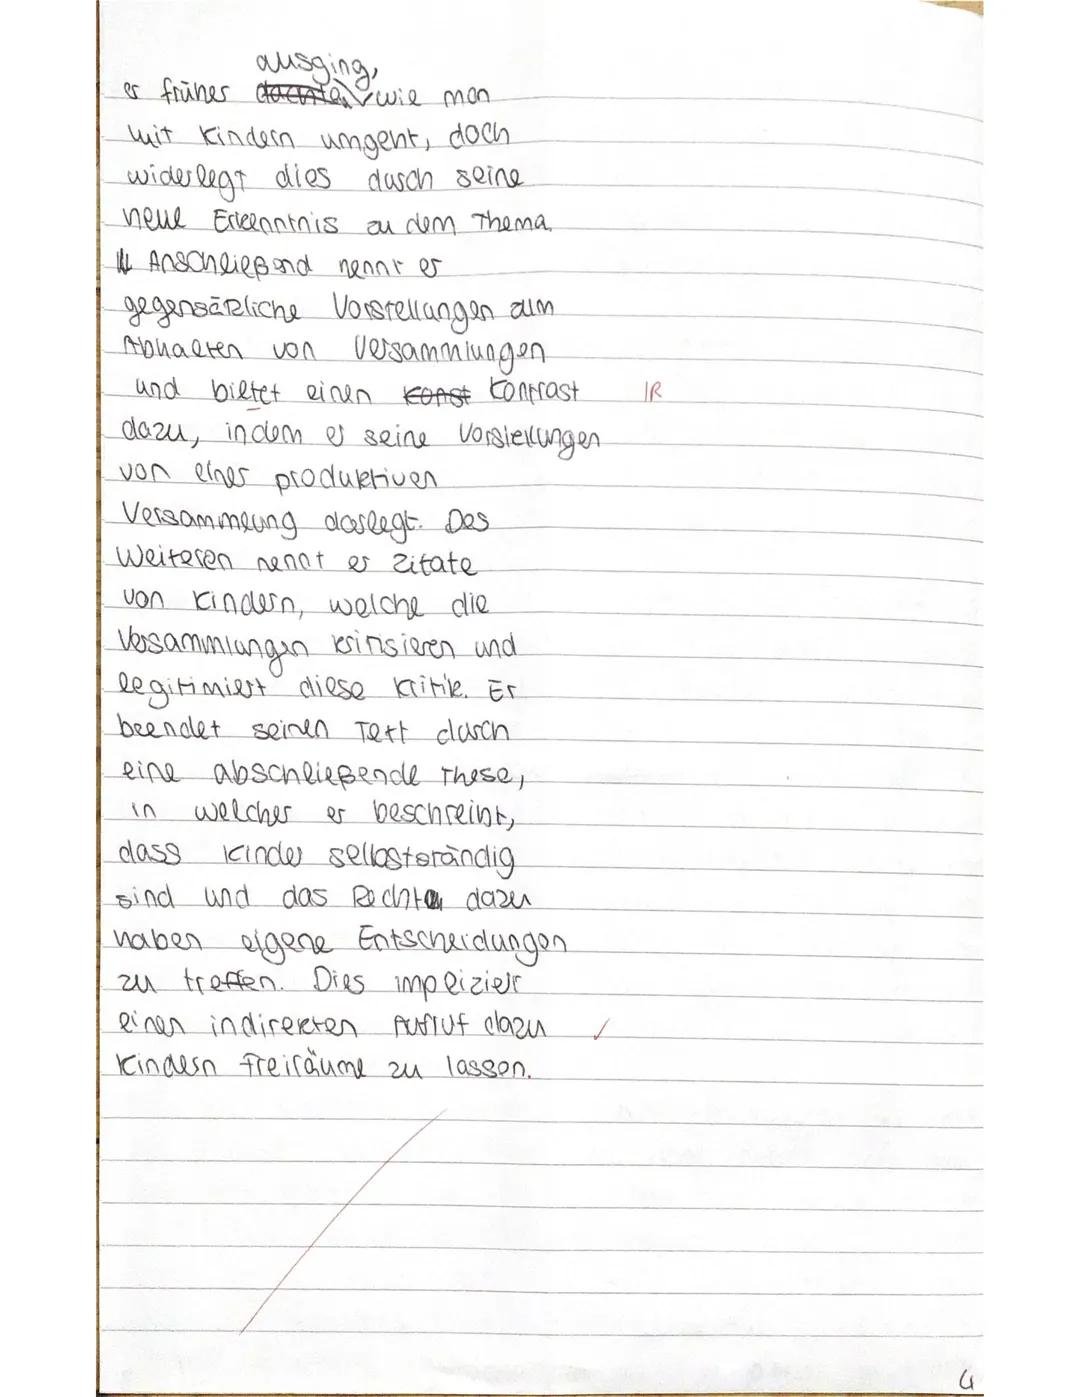 ausging,
er früher dachte, wie man
mit Kindern umgeht, doch
widerlegt dies durch seine
neue Erkenntnis zu dem Thema.
Anschließend nennt er
gegensätzliche Vorstellungen zum
Abhalten von Versammlungen
und bietet einen Konst Kontrast |R
dazu, indem er seine Vorstellungen
von einer produktiven
Versammlung darlegt. Des
Weiteren nennt er Zitate
von Kindern, welche die
Versammlungen kritisieren und
legitimiert diese Kritik. Er
beendet seinen Text durch
eine abschließende These,
in welcher er beschreibt,
dass Kinder selbstständig
sind und das Recht dazu
haben eigene Entscheidungen
zu treffen. Dies impliziert
einen indirekten Aufruf dazu ✓
Kindern Freiräume zu lassen.
4